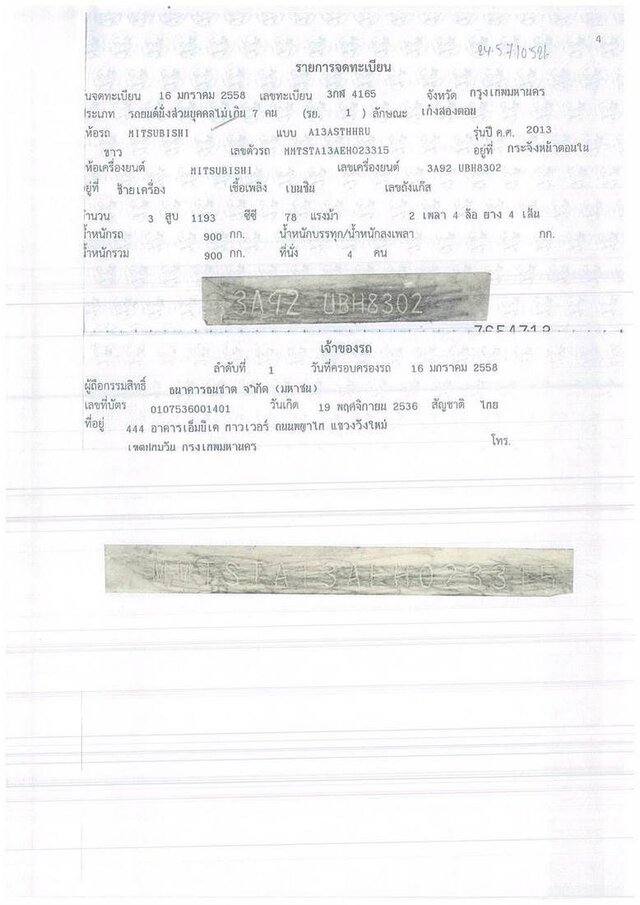 4
24-5710526
รายการจดทะเบียน
นจดทะเบียน 16 มกราคม 2558 เลขทะเบียน 3กฬ 4165 จังหวัด กรุงเทพมหานคร
ประเภท รถยนต์นั่งส่วนบุคคลไม่เกิน 7 คน (รย. 1 ) ลักษณะ เก๋งสองตอน
ห้อรถ MITSUBISHI แบบ A13ASTHHRU รุ่นปี ค.ศ. 2013
ขาว เลขตัวรถ MMTSTA13AEH023315 อยู่ที่ กระจังหน้าตอนใน
ห้อเครื่องยนต์ MITSUBISHI เลขเครื่องยนต์ 3A92 UBH8302
ยู่ที่ ซ้ายเครื่อง เชื้อเพลิง เบนซิน เลขถังแก๊ส
จำนวน 3 สูบ 1193 ซีซี 78 แรงม้า 2 เพลา 4 ล้อ ยาง 4 เส้น
น้ำหนักรถ 900 กก. น้ำหนักบรรทุก/น้ำหนักลงเพลา กก.
น้ำหนักรวม 900 กก. ที่นั่ง 4 คน
3A92 UBH8302
7654712
เจ้าของรถ
ลำดับที่ 1 วันที่ครอบครองรถ 16 มกราคม 2558
ผู้ถือกรรมสิทธิ์ ธนาคารธนชาต จำกัด (มหาชน)
เลขที่บัตร 0107536001401 วันเกิด 19 พฤศจิกายน 2536 สัญชาติ ไทย
ที่อยู่ 444 อาคารเอ็มบีเค ทาวเวอร์ ถนนพญาไท แขวงวังใหม่
เขตปทุมวัน กรุงเทพมหานคร โทร.
MMTSTA13AEH023315